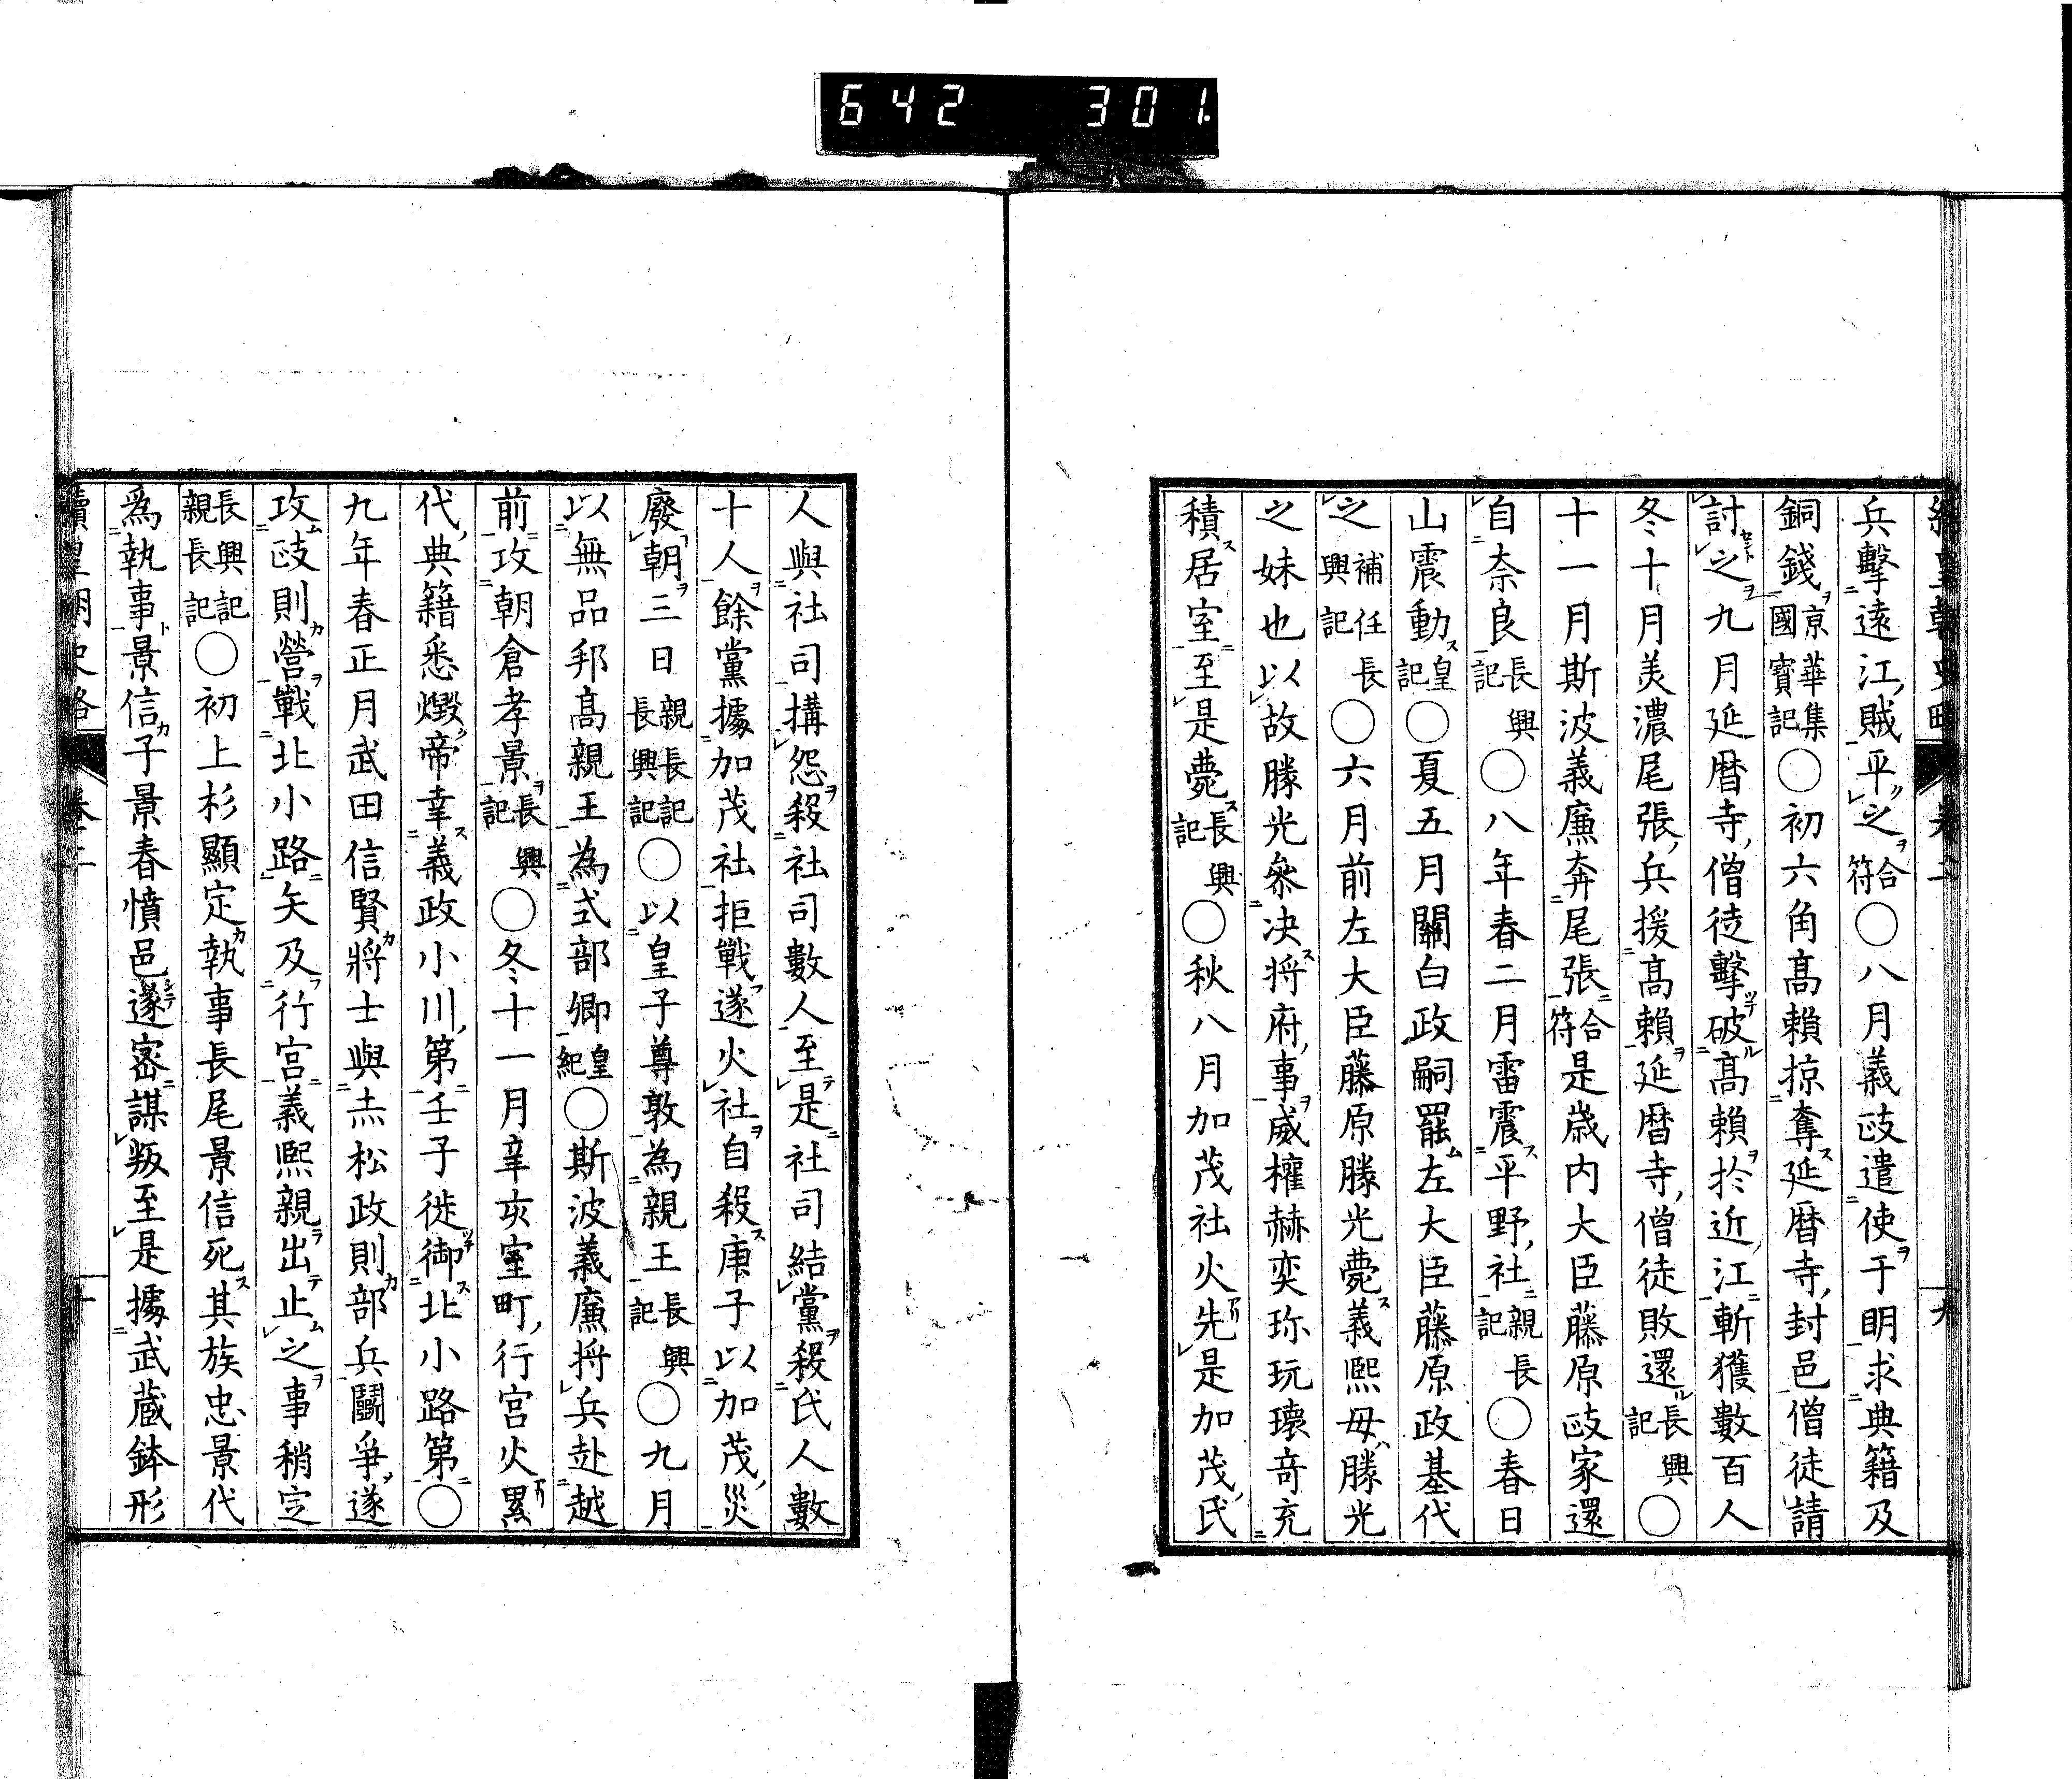 642 301.
續皇朝史略 卷二 九
兵擊遠江賊平之合符○八月義政遣使于明求典籍及
銅錢京華集國寶記○初六角髙賴掠奪延暦寺封邑僧徒請
討之九月延暦寺僧徒擊破髙賴於近江斬獲數百人
冬十月美濃尾張兵援髙賴延暦寺僧徒敗還長興記○
十一月斯波義廉奔尾張合符是歳内大臣藤原政家還
自奈良長興記○八年春二月雷震平野社親長記○春日
山震動皇記○夏五月關白政嗣罷左大臣藤原政基代
之補任長興記○六月前左大臣藤原勝光薨義熙母勝光
之妹也以故勝光參決将府事威權赫奕珎玩瓌奇充
積居室至是薨長興記○秋八月加茂社火先是加茂氏
人與社司搆怨殺社司數人至是社司結黨殺氏人數
十人餘黨據加茂社拒戰遂火社自殺庚子以加茂災
廢朝三日親長記長興記○以皇子尊敦為親王長興記○九月
以無品邦髙親王為式部卿皇紀○斯波義廉将兵赴越
前攻朝倉孝景長興記○冬十一月辛亥室町行宮火累
代典籍悉燬帝幸義政小川第壬子徙御北小路第○
九年春正月武田信賢將士與赤松政則部兵鬪爭遂
攻政則營戰北小路矢及行宮義熙親出止之事稍定
長興記親長記○初上杉顯定執事長尾景信死其族忠景代
為執事景信子景春憤邑遂密謀叛至是據武蔵鉢形
續皇朝史略 卷二 十